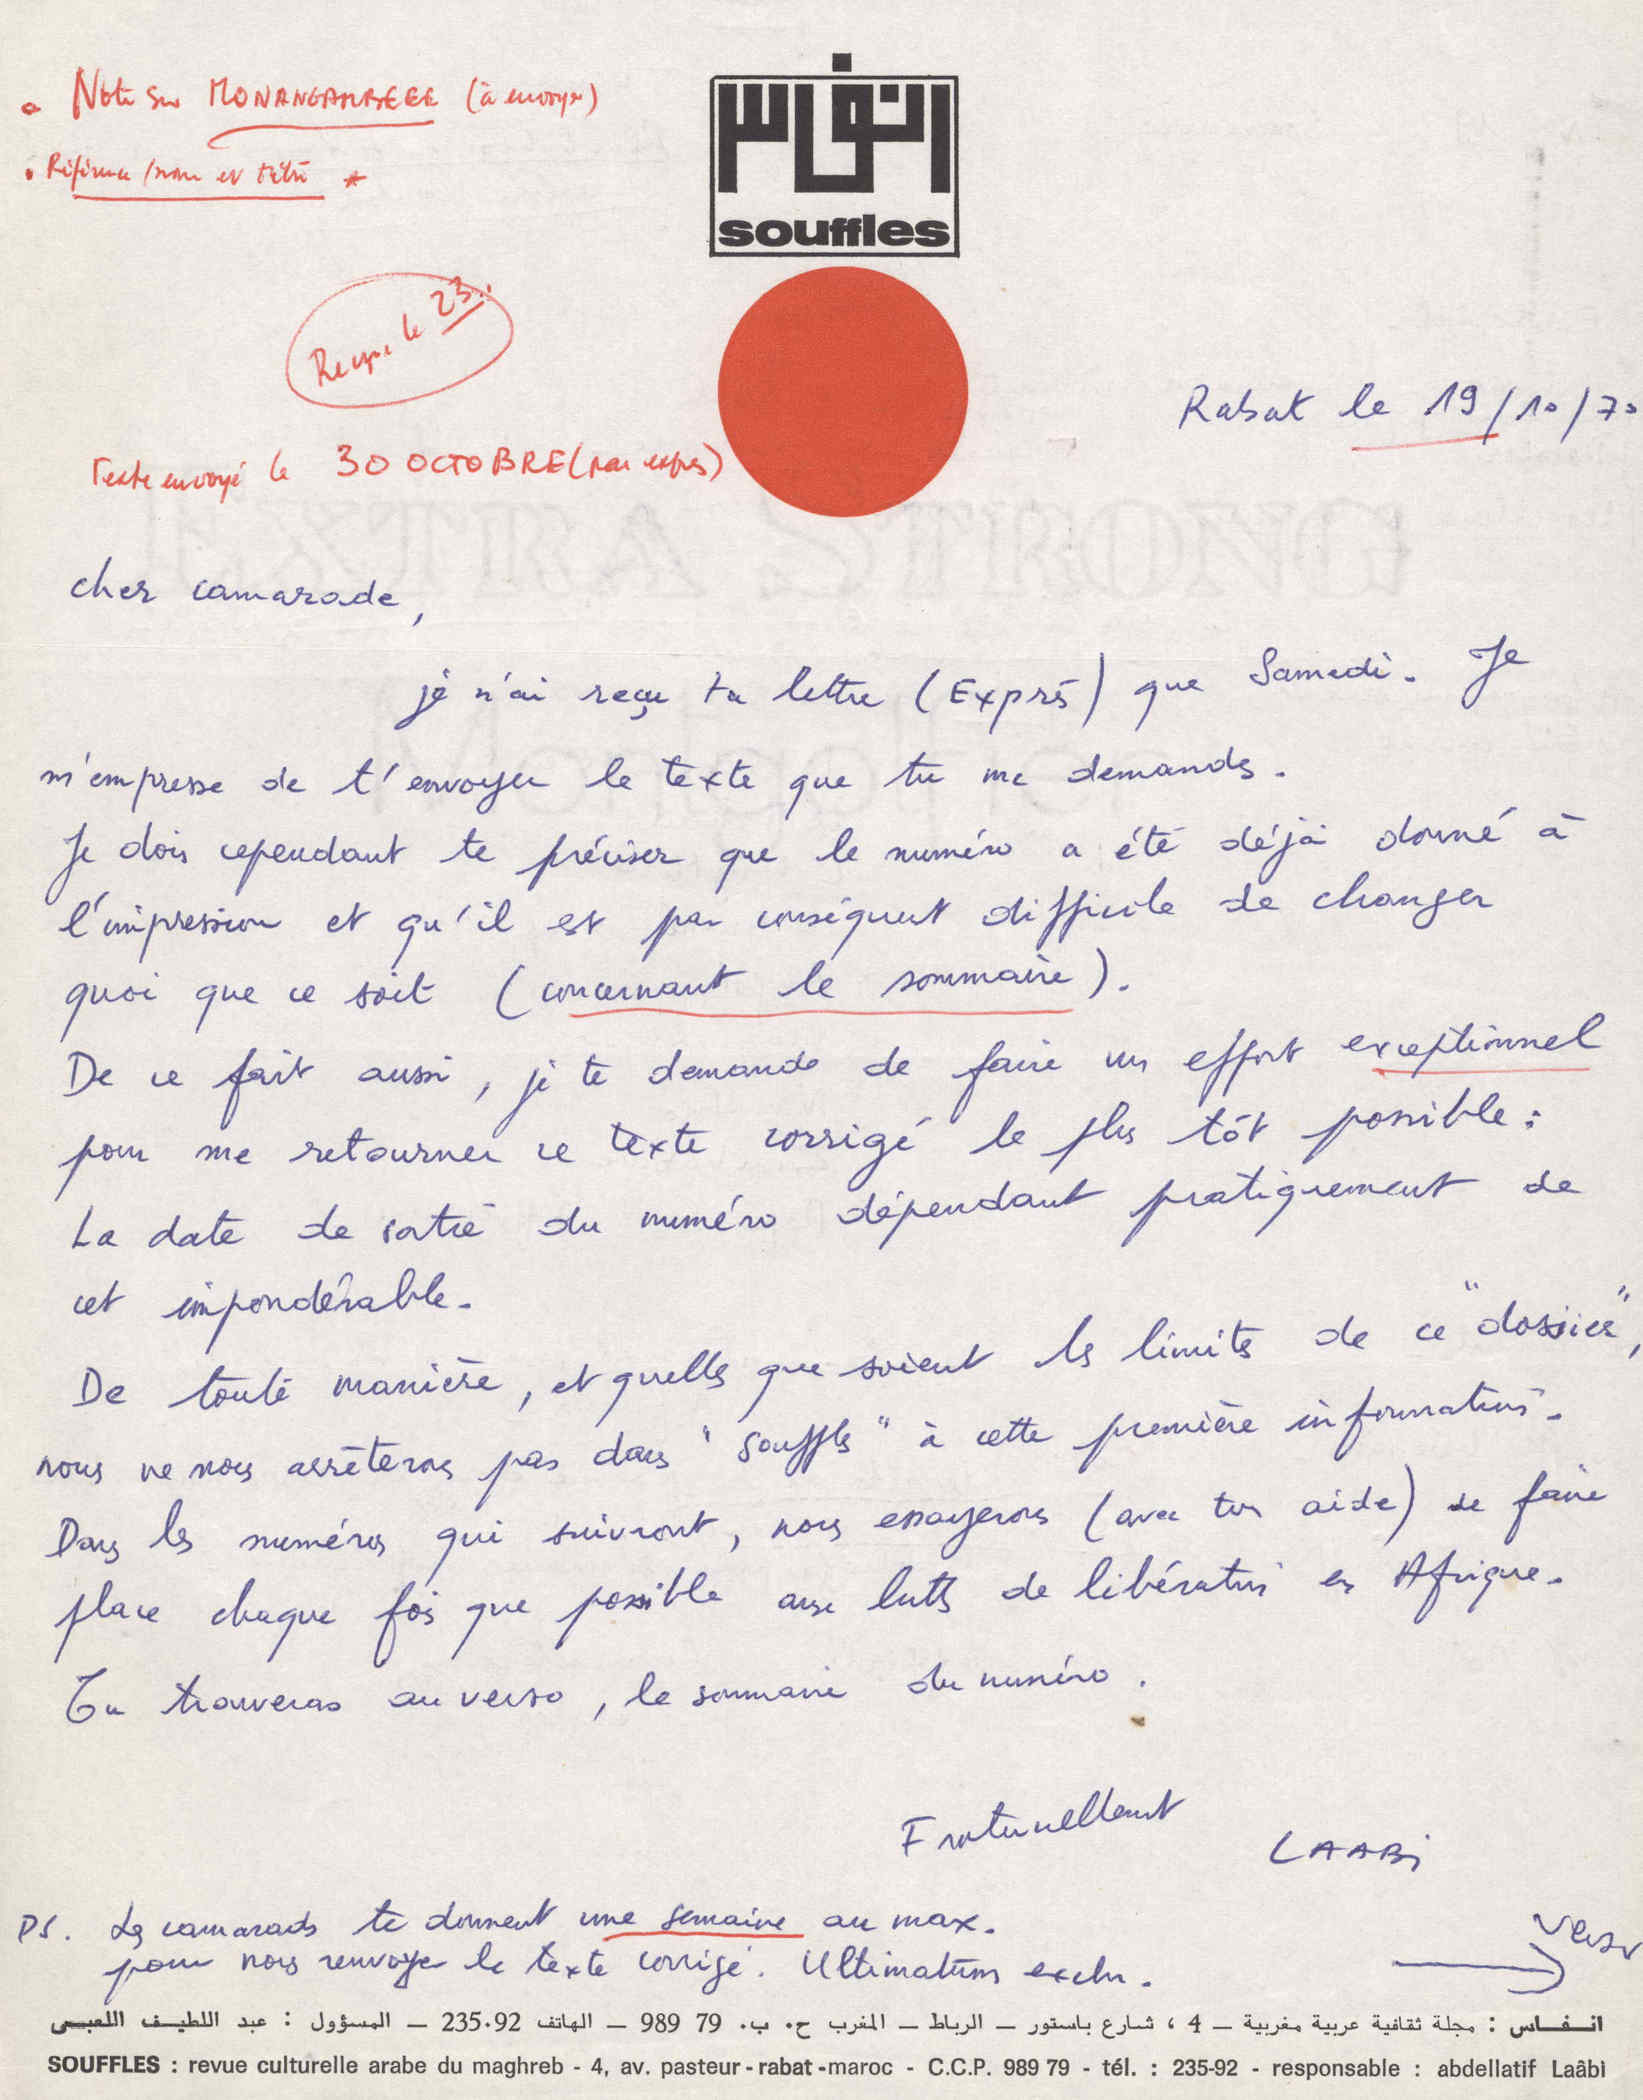 • Note sur MONANGAMBEEE (à envoyer)
• Référence / nom et titre *
انفاس
souffles
Reçu le 23..
Rabat le 19/10/70
Texte envoyé le 30 OCTOBRE (par exprès)
cher camarade,
je n'ai reçu ta lettre (Exprès) que Samedi. Je
m'empresse de t'envoyer le texte que tu me demandes.
Je dois cependant te préciser que le numéro a été déjà donné à
l'impression et qu'il est par conséquent difficile de changer
quoi que ce soit (concernant le sommaire).
De ce fait aussi, je te demande de faire un effort exceptionnel
pour me retourner ce texte corrigé le plus tôt possible :
La date de sortie du numéro dépendant pratiquement de
cet impondérable.
De toute manière, et quelles que soient les limites de ce "dossier",
nous ne nous arrêterons pas dans "Souffles" à cette première information.
Dans les numéros qui suivront, nous essayerons (avec ton aide) de faire
place chaque fois que possible aux luttes de libération en Afrique.
Tu trouveras au verso, le sommaire du numéro.
Fraternellement
LAABI
PS. Les camarades te donnent une semaine au max.
pour nous renvoyer le texte corrigé. Ultimatum exclu.
verso
انفاس : مجلة ثقافية عربية مغربية – 4 ، شارع باستور – الرباط – المغرب ح. ب. 79 989 – الهاتف 235.92 – المسؤول : عبد اللطيف اللعبي
SOUFFLES : revue culturelle arabe du maghreb - 4, av. pasteur - rabat - maroc - C.C.P. 989 79 - tél. : 235-92 - responsable : abdellatif Laâbi